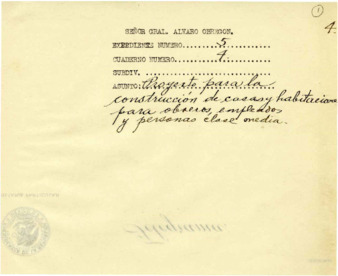 1
4.
SEÑOR GRAL. ALVARO OBREGON.
EXPEDIENTE NUMERO......5..........
CUADERNO NUMERO........4..........
SUBDIV. ..........................
ASUNTO: Proyecto para la
construcción de casas y habitaciones
para obreros, empleados
y personas clase media.